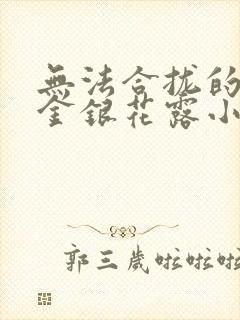 無法合拢的
金銀花露小
郭三歲啦啦啦